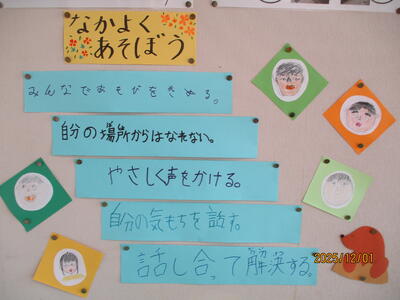 なかよく
あそぼう
みんなであそびをきめる。
自分の場所からはなれない。
やさしく声をかける。
自分の気もちを話す。
話し合って解決する。
2025/12/01